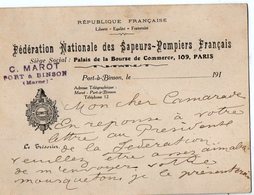 RÉPUBLIQUE FRANÇAISE
Liberté - Égalité - Fraternité
Fédération Nationale des Sapeurs-Pompiers Français
Siège Social : Palais de la Bourse de Commerce, 109, PARIS
C. MAROT
PORT A BINSON
(Marne)
Port-à-Binson, le 191
Adresse Télégraphique :
Marot - Port-à-Binson
Téléphone 12
Mon cher Camarade
En réponse à votre
lettre au Président
Le Trésorier
de la Fédération
veuillez être assez aimable
de m'envoyer votre